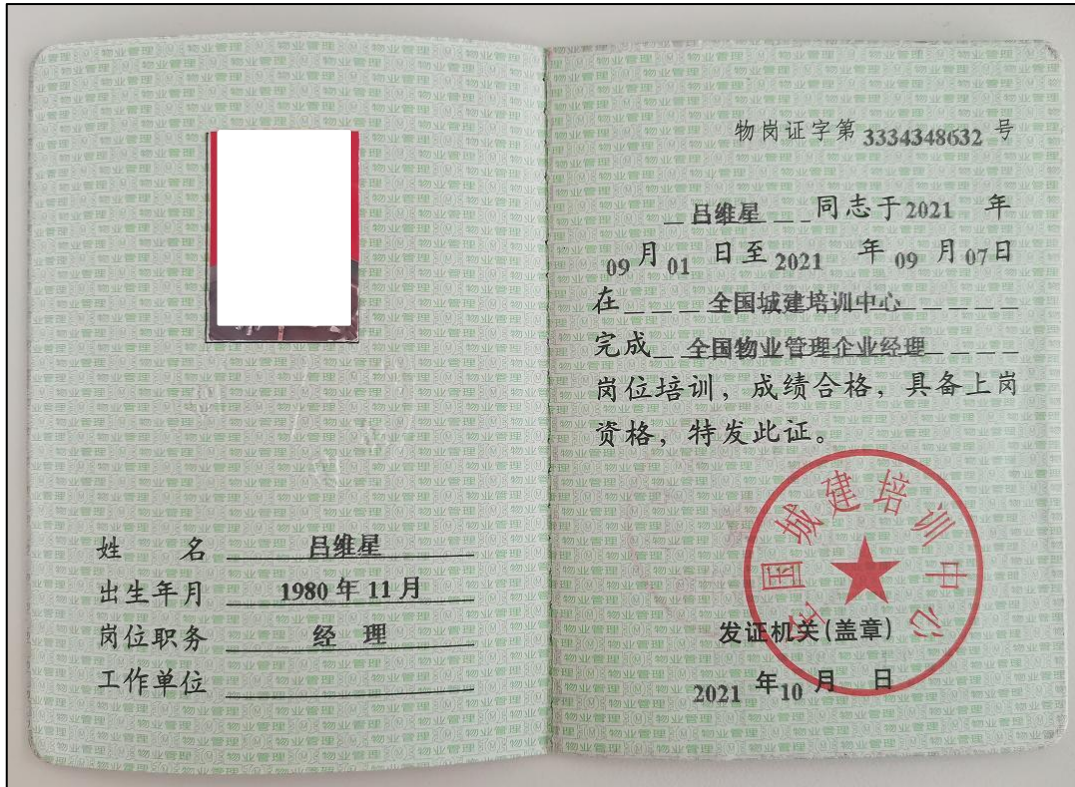 姓 名 吕维星
出生年月 1980 年 11 月
岗位职务 经 理
工作单位
物岗证字第 3334348632 号
吕维星 同志于 2021 年
09 月 01 日至 2021 年 09 月 07 日
在 全国城建培训中心
完成 全国物业管理企业经理
岗位培训，成绩合格，具备上岗
资格，特发此证。
全国城建培训中心
发证机关(盖章)
2021 年 10 月 日
物业管理